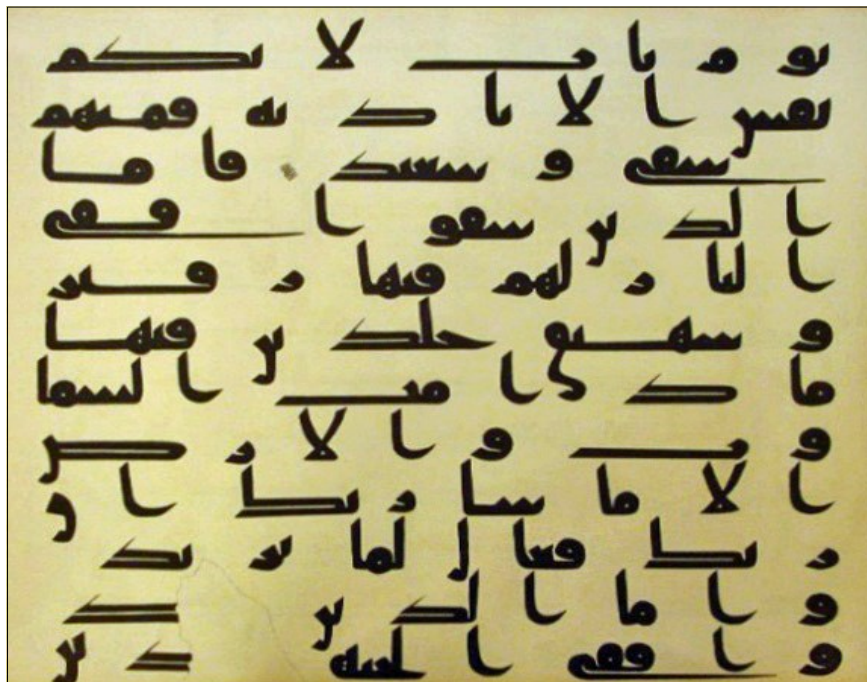 يوم يات لا تكلم
نفس الا باذنه فمنهم
شقي وسعيد فاما
الذين شقوا ففي
النار لهم فيها زفير
وشهيق خلدين فيها
ما دامت السما
وت والارض
الا ما شا ربك ان
ربك فعال لما يريد
واما الذين
وا ففي الجنه